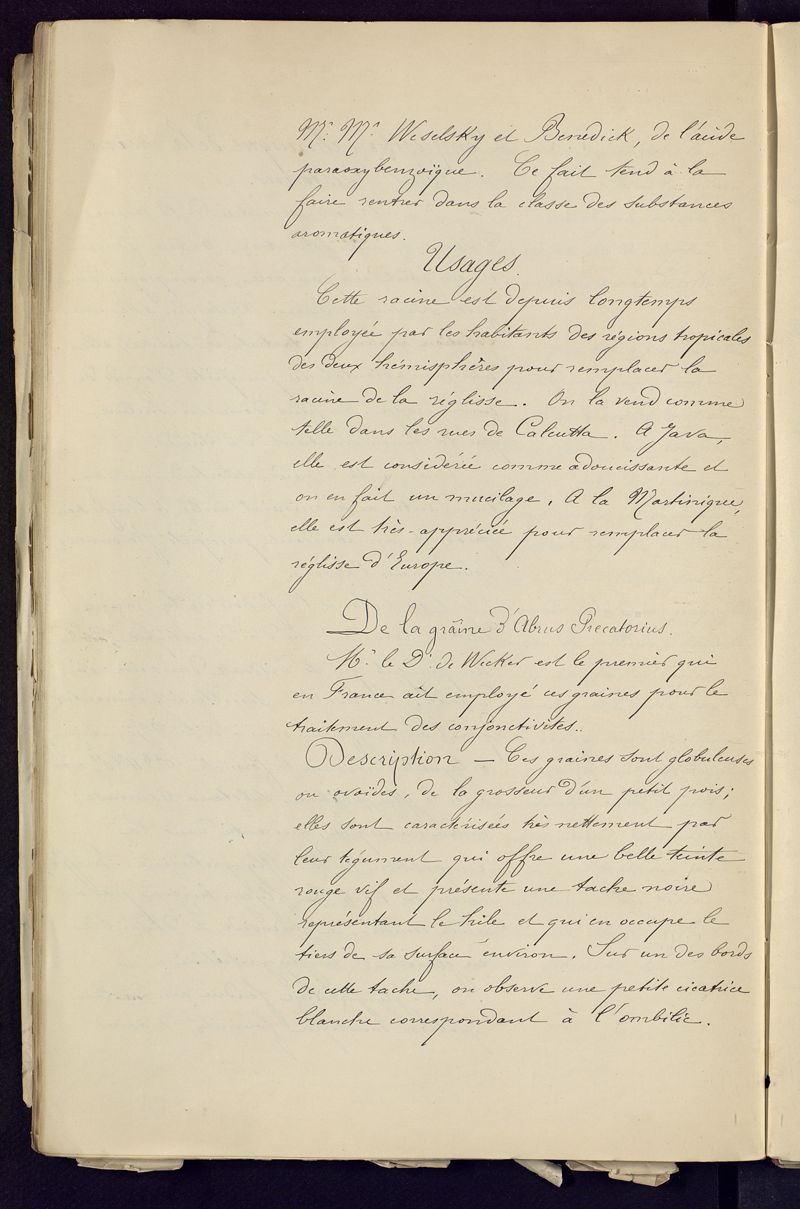 Mr. Mr. Weselsky et Benedick, de l'acide
paraoxybenzoïque. Ce fait tend à la
faire rentrer dans la classe des substances
aromatiques.
Usages.
Cette racine est depuis longtemps
employée par les habitants des régions tropicales
des deux hémisphères pour remplacer la
racine de la réglisse. On la vend comme
telle dans les rues de Calcutta. A Java,
elle est considérée comme adoucissante et
on en fait un mucilage. A la Martinique,
elle est très-appréciée pour remplacer la
réglisse d'Europe.
De la graine d'Abrus Precatorius.
Mr. le Dr. de Wecker est le premier qui
en France ait employé ces graines pour le
traitement des conjonctivites..
Description — Ces graines sont globuleuses
ou ovoïdes, de la grosseur d'un petit pois;
elles sont caractérisées très nettement par
leur tégument qui offre une belle teinte
rouge vif et présente une tache noire
représentant le hile et qui en occupe le
tiers de sa surface environ. Sur un des bords
de cette tache, on observe une petite cicatrice
blanche correspondant à l'ombilic.